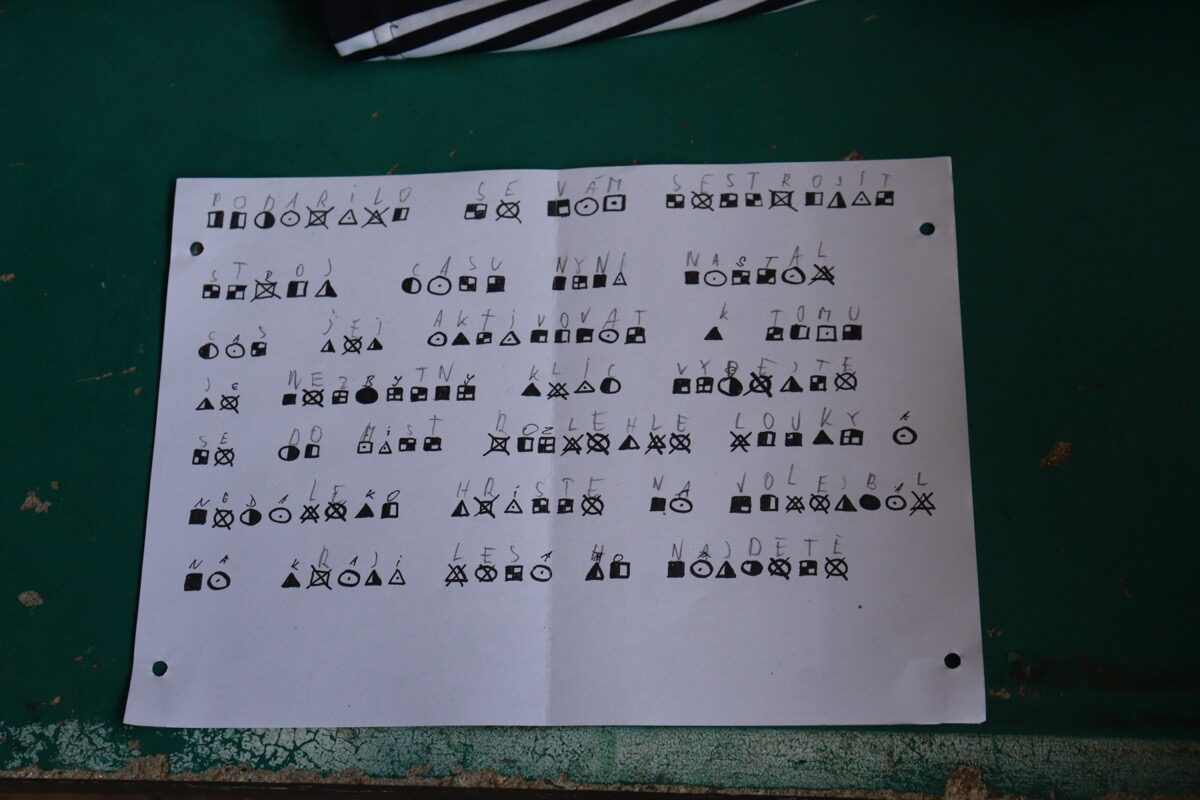 PODAŘILO SE VÁM SESTROJIT
STROJ CASU NYNI NASTAL
CAS JEJ AKTIVOVAT K TOMU
JE NEZBYTNY KLIC VYDEJTE
SE DO MIST ROZLEHLE LOUKY A
NEDALEKO HRISTE NA VOLEJBAL
NA KRAJI LESA HO NAJDETE